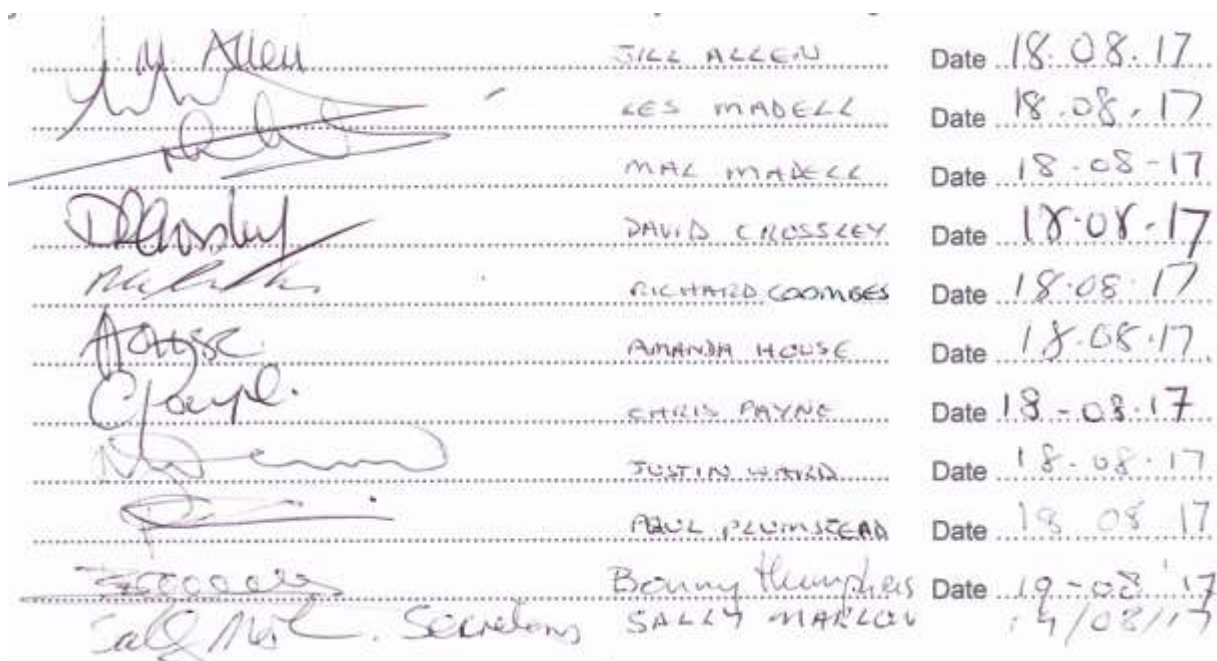 J. M. Allen JILL ALLEN Date 18.08.17
LES MADELL Date 18.08.17
MAL MADELL Date 18-08-17
DCrossley DAVID CROSSLEY Date 18.08.17
RICHARD COOMBES Date 18.08.17
AHouse JAMANDA HOUSE Date 18.08.17
CPayne. CHRIS PAYNE Date 18-08.17
JUSTIN WARD Date 18.08.17
PAUL PLUMSTEAD Date 18 08 17
Bonny Humphries Date 19-08-17
Sally Secretary SALLY MARLOW 19/08/17